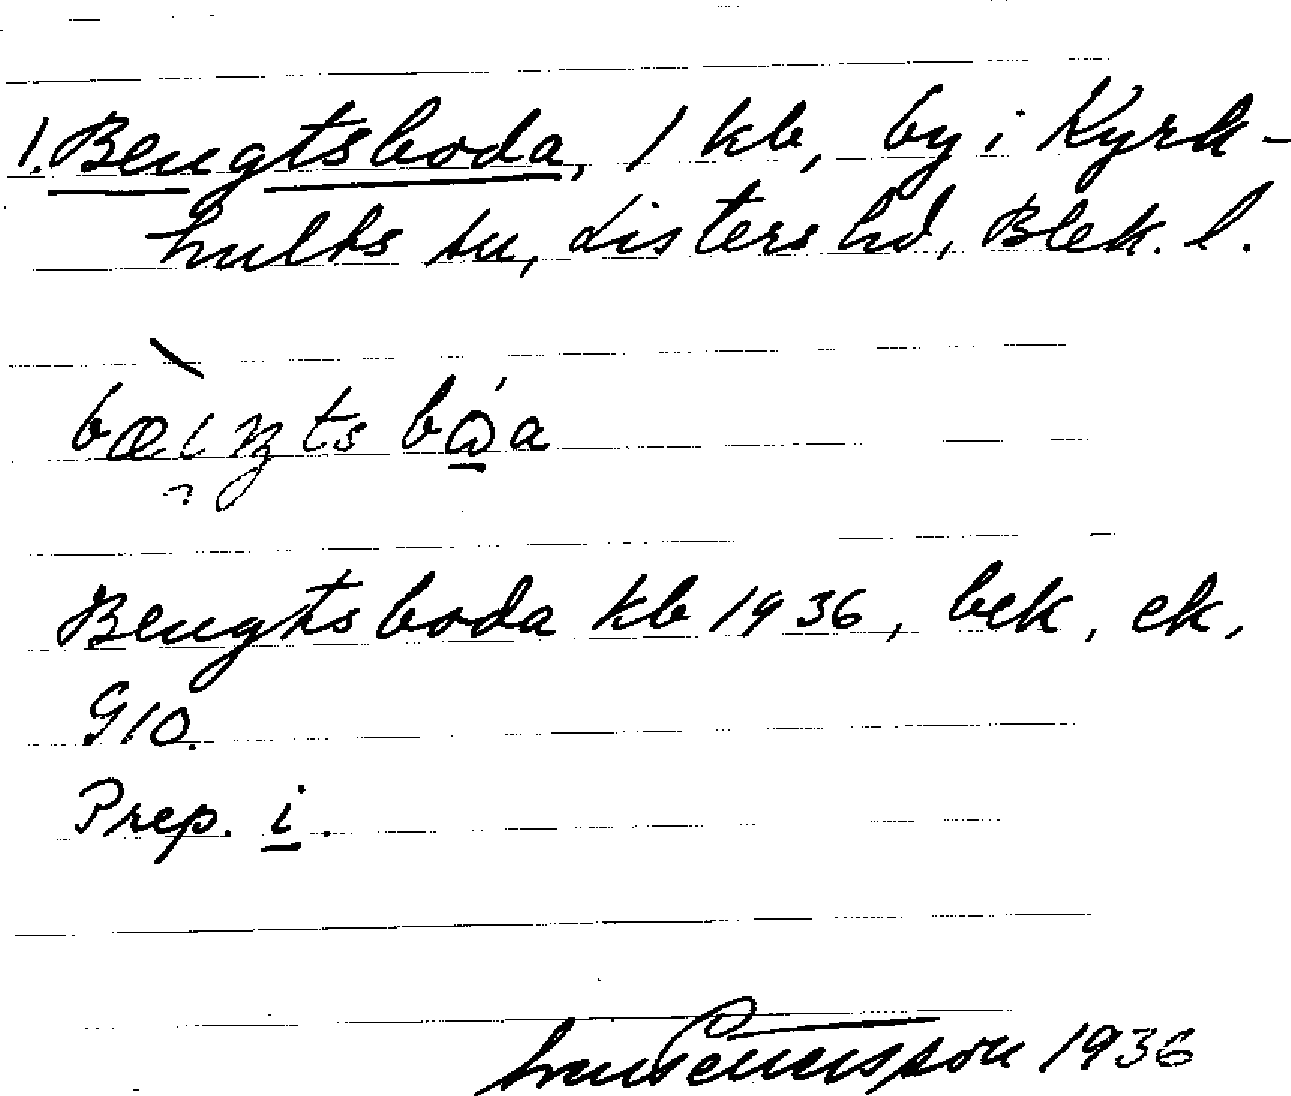 1. Bengtsboda, 1 kb, by i Kyrk-
hults sn, Listers hd, Blek. l.
bæiŋtsbωa
Bengtsboda kb 1936, bek, ek,
G10.
Prep. i.
1936